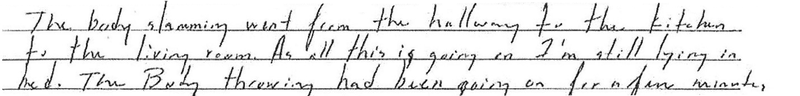 The body slamming went from the hallway to the kitchen
to the living room. As all this is going on I'm still lying in
bed. The Body throwing had been going on for a few minutes,